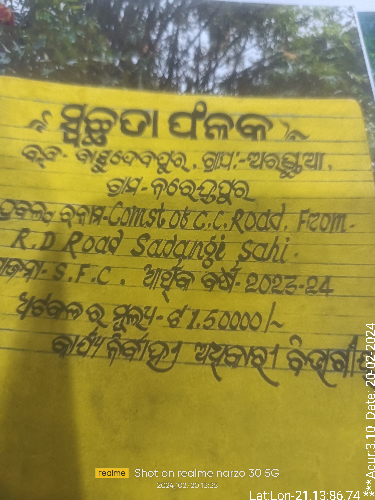 ସ୍ୱଚ୍ଛତା ଫଳକ
ବ୍ଲକ- ବାସୁଦେବପୁର, ଗ୍ରା.ପ:-ଅରଣ୍ଡୁଆ,
ଗ୍ରାମ- ନରେନ୍ଦ୍ରପୁର
ପ୍ରକଳ୍ପ ର ନାମ-Const of C.C.Road. From-
R.D Road Sadangi Sahi.
ଯୋଜନା- S.F.C. ଆର୍ଥିକ ବର୍ଷ- 2023-24
ଅଟକଳ ର ମୂଲ୍ୟ- ₹ 1.50000/-
କାର୍ଯ୍ୟ ନିର୍ବାହୀ ଅଧିକାରୀ ବିଭାଗୀୟ
realme Shot on realme narzo 30 5G
2024-02-20
Lat:Lon-21.13:86.74 ***Acur:3.10 Date: 20-02-2024